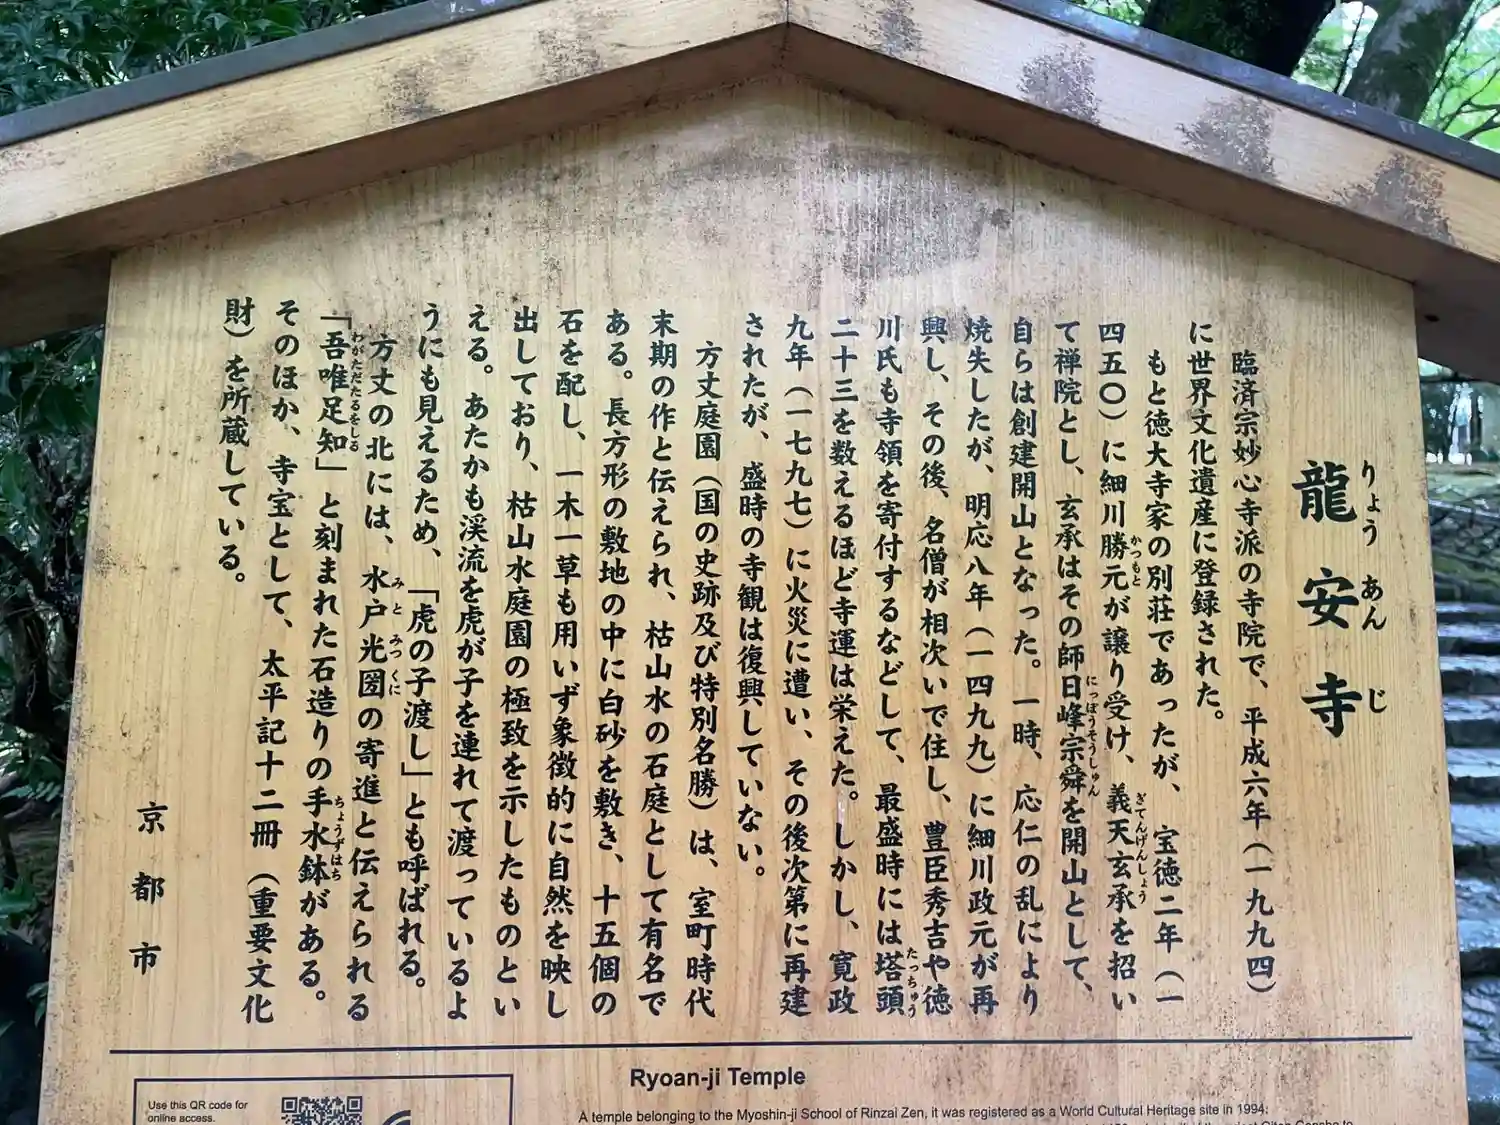 龍安寺
りょうあんじ
臨済宗妙心寺派の寺院で、平成六年（一九九四）
に世界文化遺産に登録された。
もと徳大寺家の別荘であったが、宝徳二年（一
四五〇）に細川勝元が譲り受け、義天玄承を招い
かつもと
ぎてんげんしょう
て禅院とし、玄承はその師日峰宗舜を開山として、
にっぽうそうしゅん
自らは創建開山となった。一時、応仁の乱により
焼失したが、明応八年（一四九九）に細川政元が再
興し、その後、名僧が相次いで住し、豊臣秀吉や徳
川氏も寺領を寄付するなどして、最盛時には塔頭
たっちゅう
二十三を数えるほど寺運は栄えた。しかし、寛政
九年（一七九七）に火災に遭い、その後次第に再建
されたが、盛時の寺観は復興していない。
方丈庭園（国の史跡及び特別名勝）は、室町時代
末期の作と伝えられ、枯山水の石庭として有名で
ある。長方形の敷地の中に白砂を敷き、十五個の
石を配し、一木一草も用いず象徴的に自然を映し
出しており、枯山水庭園の極致を示したものとい
える。あたかも渓流を虎が子を連れて渡っているよ
うにも見えるため、「虎の子渡し」とも呼ばれる。
方丈の北には、水戸光圀の寄進と伝えられる
みとみつくに
「吾唯足知」と刻まれた石造りの手水鉢がある。
わがただたるをしる
ちょうずはち
そのほか、寺宝として、太平記十二冊（重要文化
財）を所蔵している。
京都市
Ryoan-ji Temple
Use this QR code for
online access.
A temple belonging to the Myoshin-ji School of Rinzai Zen, it was registered as a World Cultural Heritage site in 1994.